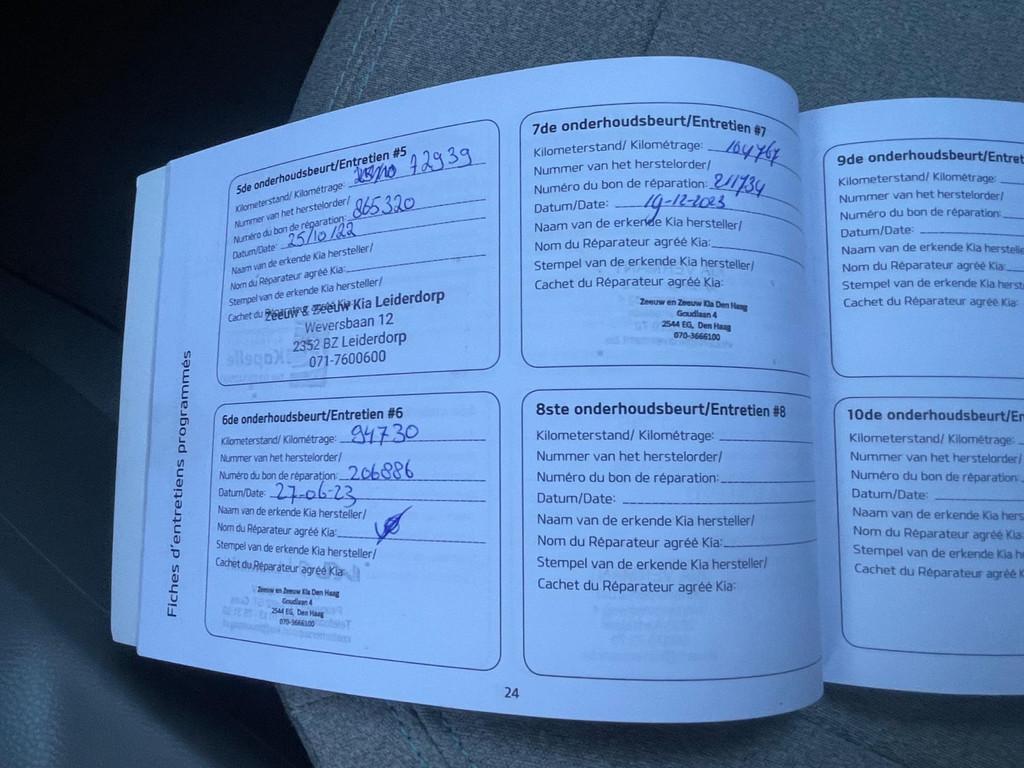 Fiches d'entretiens programmés
5de onderhoudsbeurt/Entretien #5
Kilometerstand/ Kilométrage: 72939
Nummer van het herstelorder/
Numéro du bon de réparation: 865320
Datum/Date: 25/10/22
Naam van de erkende Kia hersteller/
Nom du Réparateur agréé Kia:
Stempel van de erkende Kia hersteller/
Cachet du Réparateur agréé Kia:
Zeeuw & Zeeuw Kia Leiderdorp
Weversbaan 12
2352 BZ Leiderdorp
071-7600600
6de onderhoudsbeurt/Entretien #6
Kilometerstand/ Kilométrage: 94730
Nummer van het herstelorder/
Numéro du bon de réparation: 206886
Datum/Date: 27-06-23
Naam van de erkende Kia hersteller/
Nom du Réparateur agréé Kia:
Stempel van de erkende Kia hersteller/
Cachet du Réparateur agréé Kia:
Zeeuw en Zeeuw Kia Den Haag
Goudlaan 4
2544 EG, Den Haag
070-3666100
7de onderhoudsbeurt/Entretien #7
Kilometerstand/ Kilométrage: 104767
Nummer van het herstelorder/
Numéro du bon de réparation: 211734
Datum/Date: 19-12-2023
Naam van de erkende Kia hersteller/
Nom du Réparateur agréé Kia:
Stempel van de erkende Kia hersteller/
Cachet du Réparateur agréé Kia:
Zeeuw en Zeeuw Kia Den Haag
Goudlaan 4
2544 EG, Den Haag
070-3666100
8ste onderhoudsbeurt/Entretien #8
Kilometerstand/ Kilométrage:
Nummer van het herstelorder/
Numéro du bon de réparation:
Datum/Date:
Naam van de erkende Kia hersteller/
Nom du Réparateur agréé Kia:
Stempel van de erkende Kia hersteller/
Cachet du Réparateur agréé Kia:
24
9de onderhoudsbeurt/Entret
Kilometerstand/ Kilométrage:
Nummer van het herstelorder/
Numéro du bon de réparation:
Datum/Date:
Naam van de erkende Kia herstelle
Nom du Réparateur agréé Kia:
Stempel van de erkende Kia herste
Cachet du Réparateur agréé Kia:
10de onderhoudsbeurt/En
Kilometerstand/ Kilométrage:
Nummer van het herstelorder/
Numéro du bon de réparation:
Datum/Date:
Naam van de erkende Kia hers
Nom du Réparateur agréé Kia
Stempel van de erkende Kia h
Cachet du Réparateur agréé K